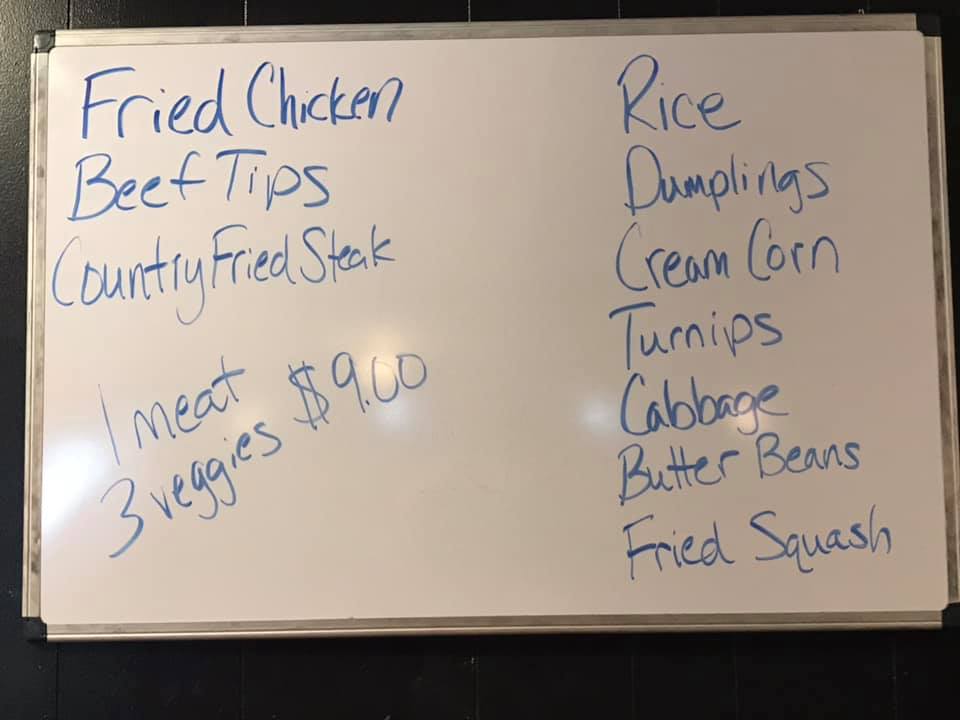 Fried Chicken
Beef Tips
Country Fried Steak
1 meat
3 veggies $9.00
Rice
Dumplings
Cream Corn
Turnips
Cabbage
Butter Beans
Fried Squash